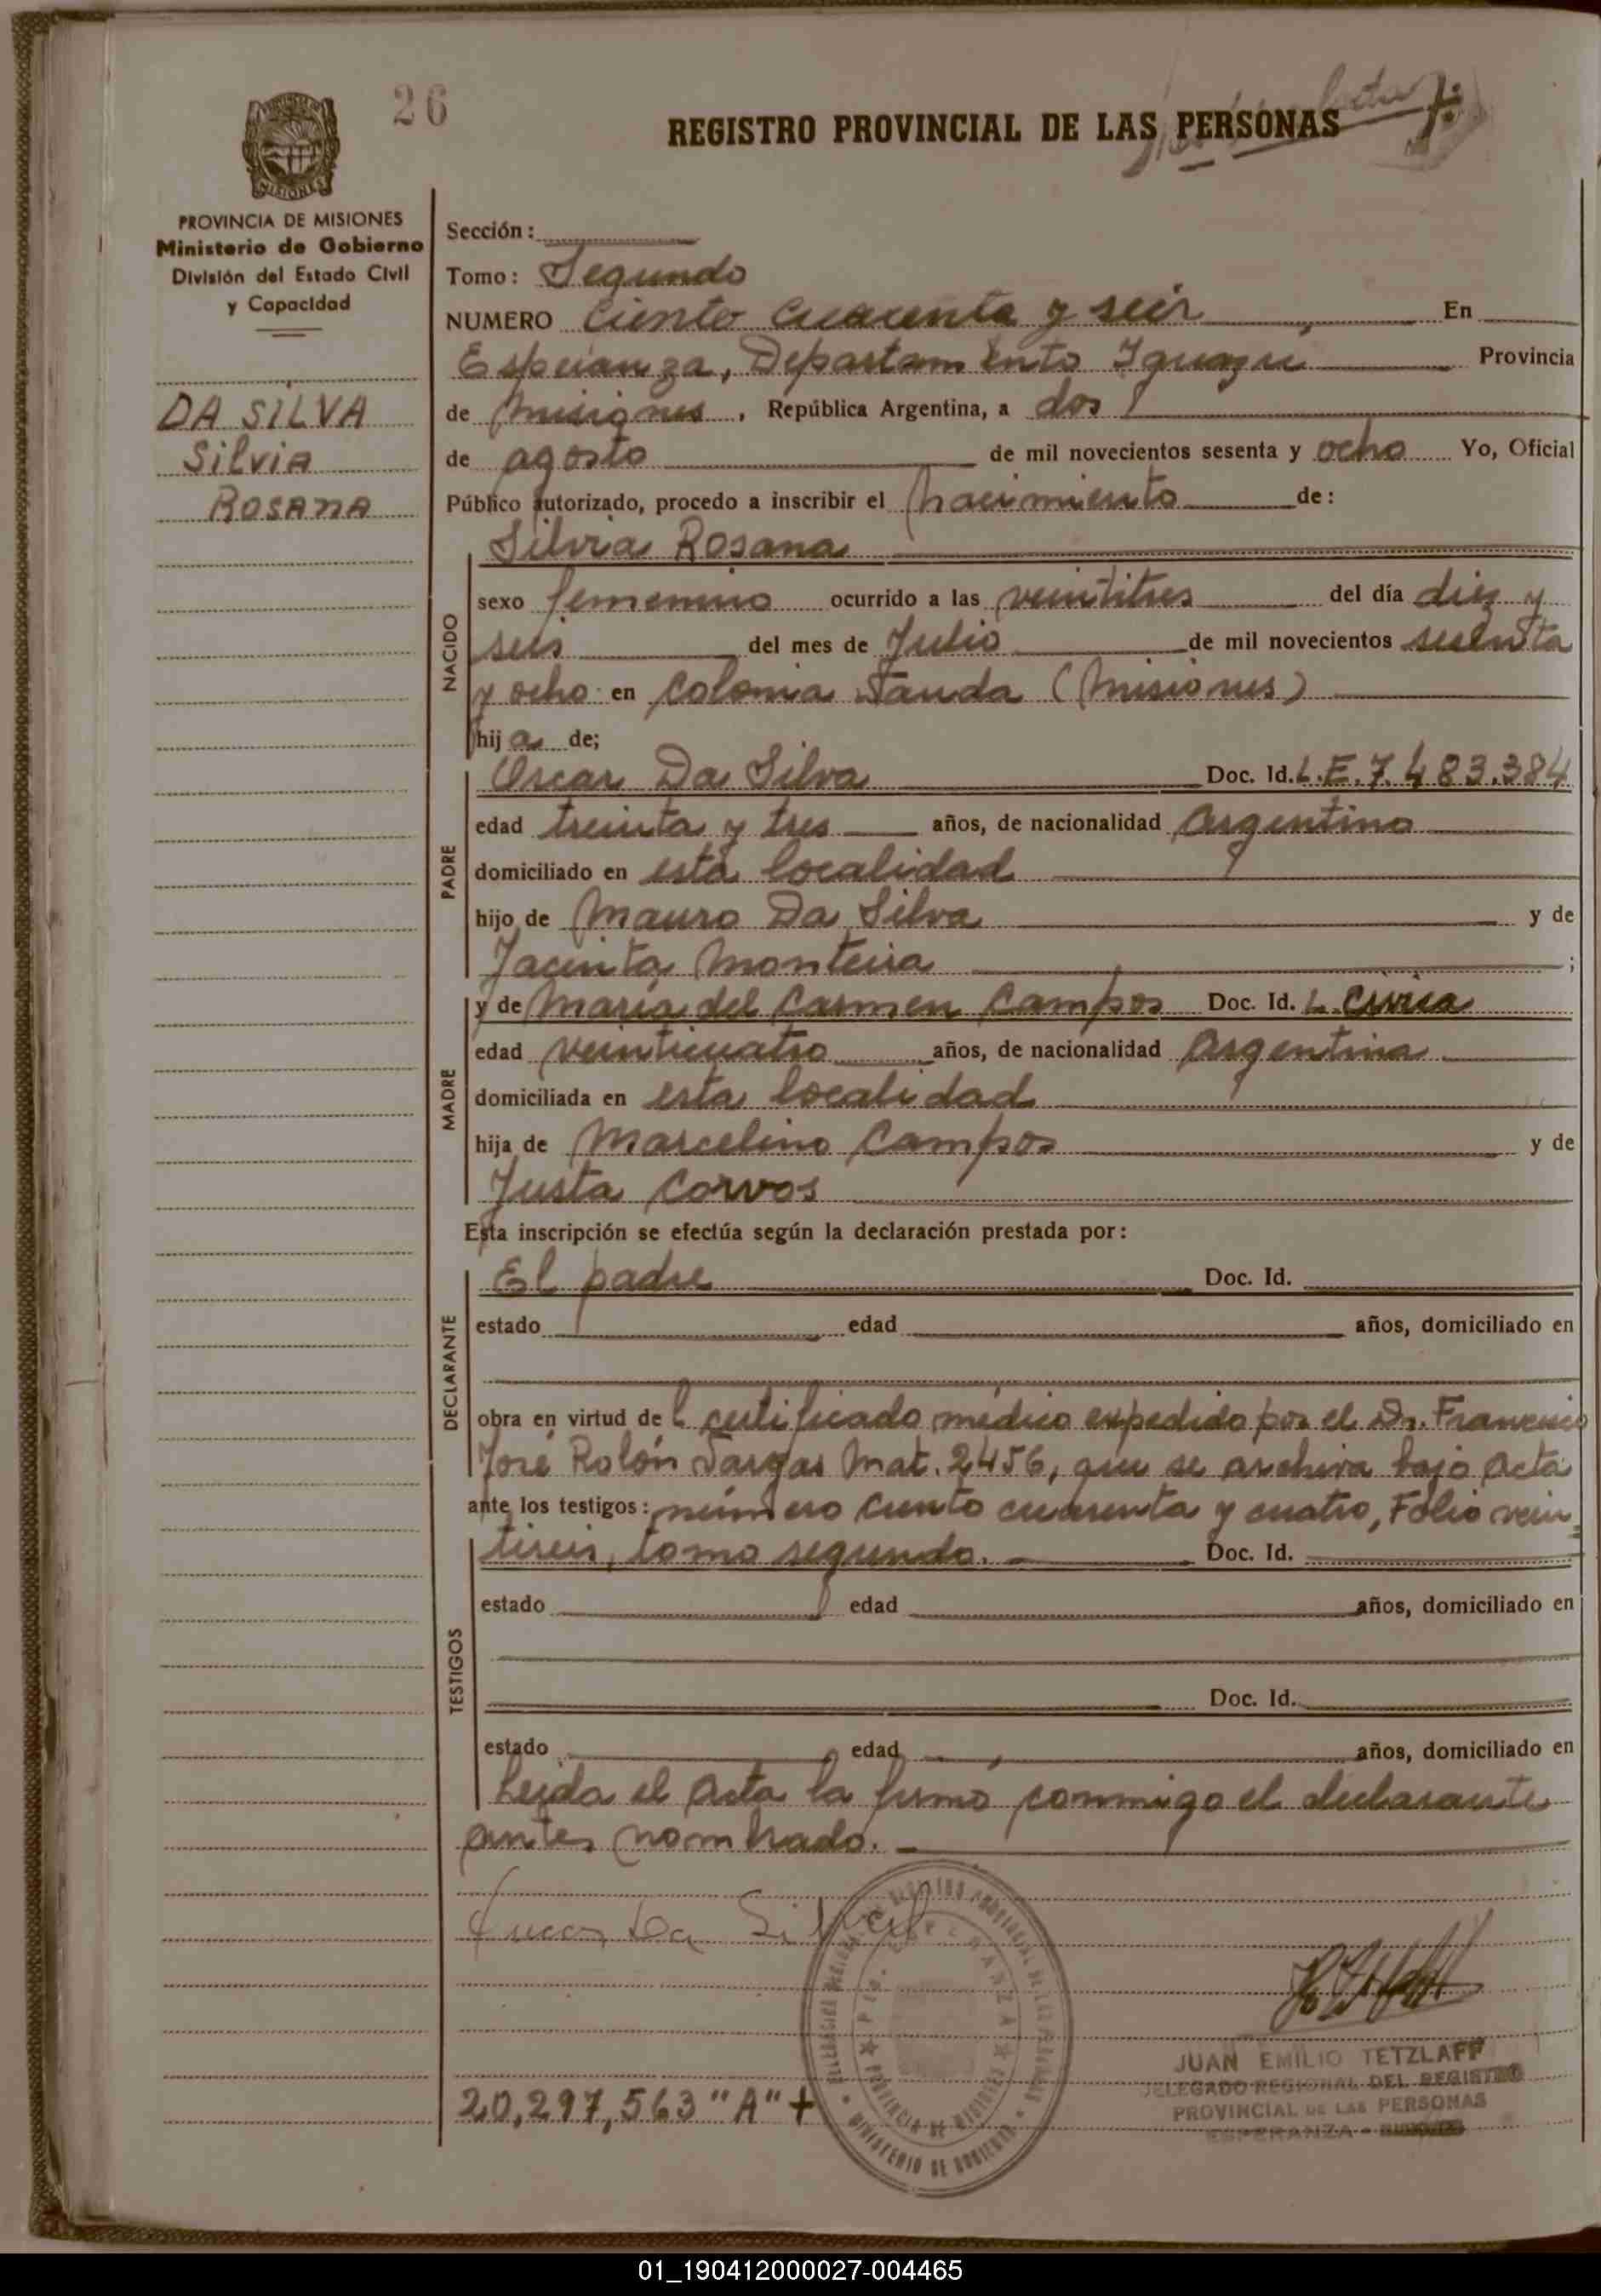 26
REGISTRO PROVINCIAL DE LAS PERSONAS
MISIONES
PROVINCIA DE MISIONES
Ministerio de Gobierno
División del Estado Civil
y Capacidad
DA SILVA
Silvia
ROSANA
Sección:
Tomo: Segundo
NUMERO Ciento cuarenta y seis En
Esperanza, Departamento Iguazú Provincia
de Misiones, República Argentina, a dos
de agosto de mil novecientos sesenta y ocho Yo, Oficial
Público autorizado, procedo a inscribir el nacimiento de:
Silvia Rosana
NACIDO
sexo femenino ocurrido a las veintitres del día diez y
seis del mes de Julio de mil novecientos sesenta
y ocho en Colonia Wanda (Misiones)
hija de;
PADRE
Oscar Da Silva Doc. Id. L.E. 7.483.384
edad treinta y tres años, de nacionalidad Argentino
domiciliado en esta localidad
hijo de Mauro Da Silva y de
Jacinta Monteira ;
MADRE
y de María del Carmen Campos Doc. Id. L. Cívica
edad veinticuatro años, de nacionalidad Argentina
domiciliada en esta localidad
hija de Marcelino Campos y de
Justa Corvos
Esta inscripción se efectúa según la declaración prestada por:
DECLARANTE
El padre Doc. Id.
estado edad años, domiciliado en
obra en virtud del certificado médico expedido por el Dr. Francisco
José Rolón Vargas Mat. 2456, que se archiva bajo Acta
ante los testigos: número ciento cuarenta y cuatro, Folio vein=
TESTIGOS
tiseis, tomo segundo. Doc. Id.
estado edad años, domiciliado en
Doc. Id.
estado edad años, domiciliado en
Leida el Acta la firmó conmigo el declarante
antes nombrado.
Da Silva
JUAN EMILIO TETZLAFF
DELEGADO REGIONAL DEL REGISTRO
PROVINCIAL DE LAS PERSONAS
ESPERANZA - MISIONES
PROVINCIA DE MISIONES
MINISTERIO DE GOBIERNO
20,297,563 "A" +
01_190412000027-004465